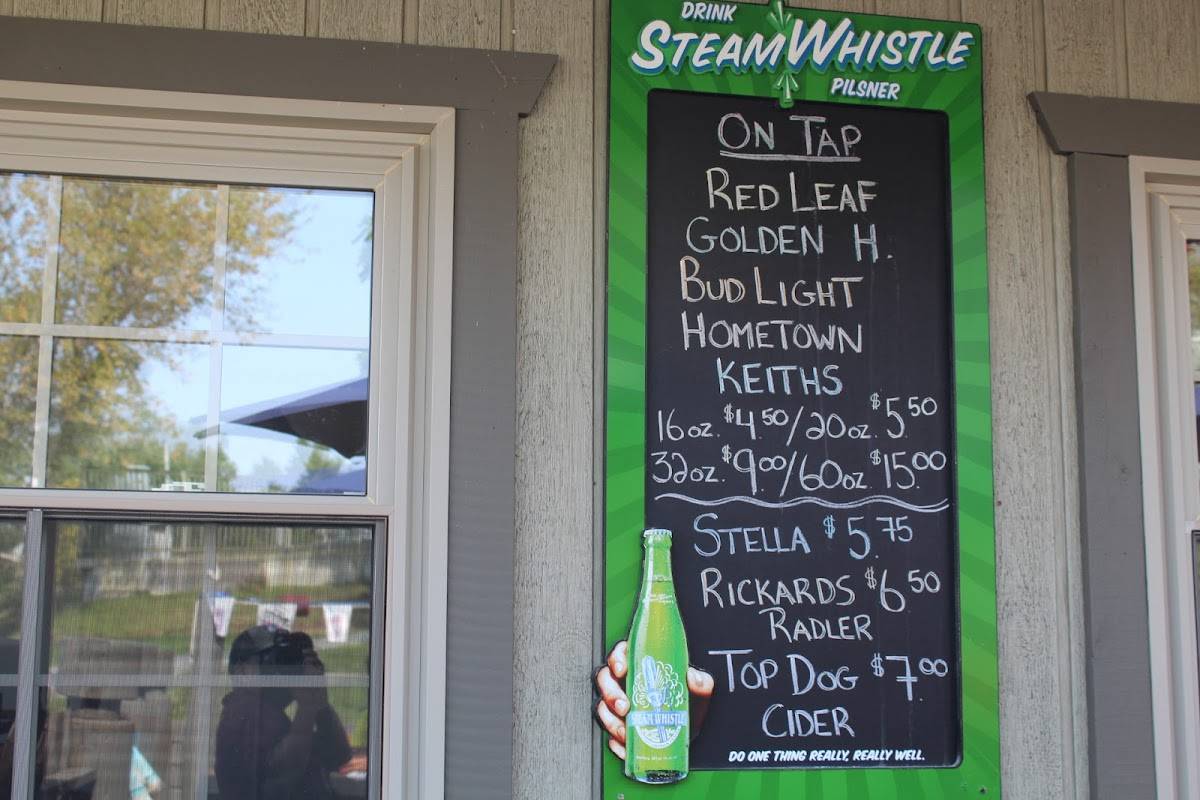 DRINK
STEAM WHISTLE
PILSNER
ON TAP
RED LEAF
GOLDEN H.
BUD LIGHT
HOMETOWN
KEITHS
16oz. $4.50/20oz. $5.50
32oz. $9.00/60oz. $15.00
STELLA $5.75
RICKARDS $6.50
RADLER
TOP DOG $7.00
CIDER
STEAM WHISTLE
DO ONE THING REALLY, REALLY WELL.